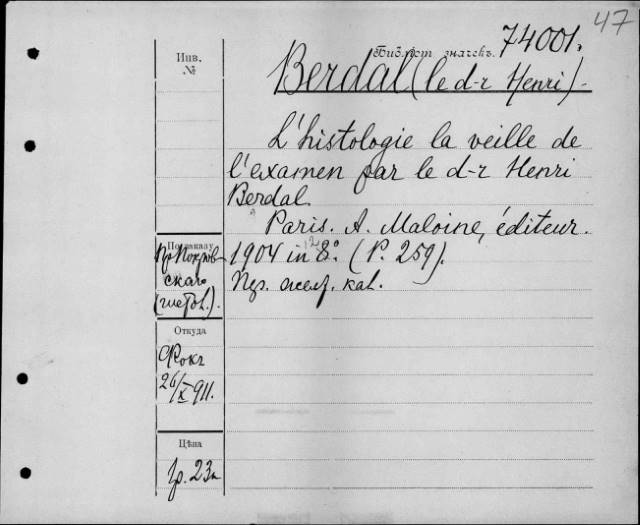 47
Библіот. значекъ. 74001.
Инв.
№
Berdal (le d-r Henri).
L'histologie la veille de
l'examen par le d-r Henri
Berdal.
Paris. A. Maloine, éditeur.
1904 in 8°. (P. 259).
По заказу
пр. Покров-
скаго
(гистол.).
Откуда
Фокъ
26/X 911.
Цѣна
1р. 23к